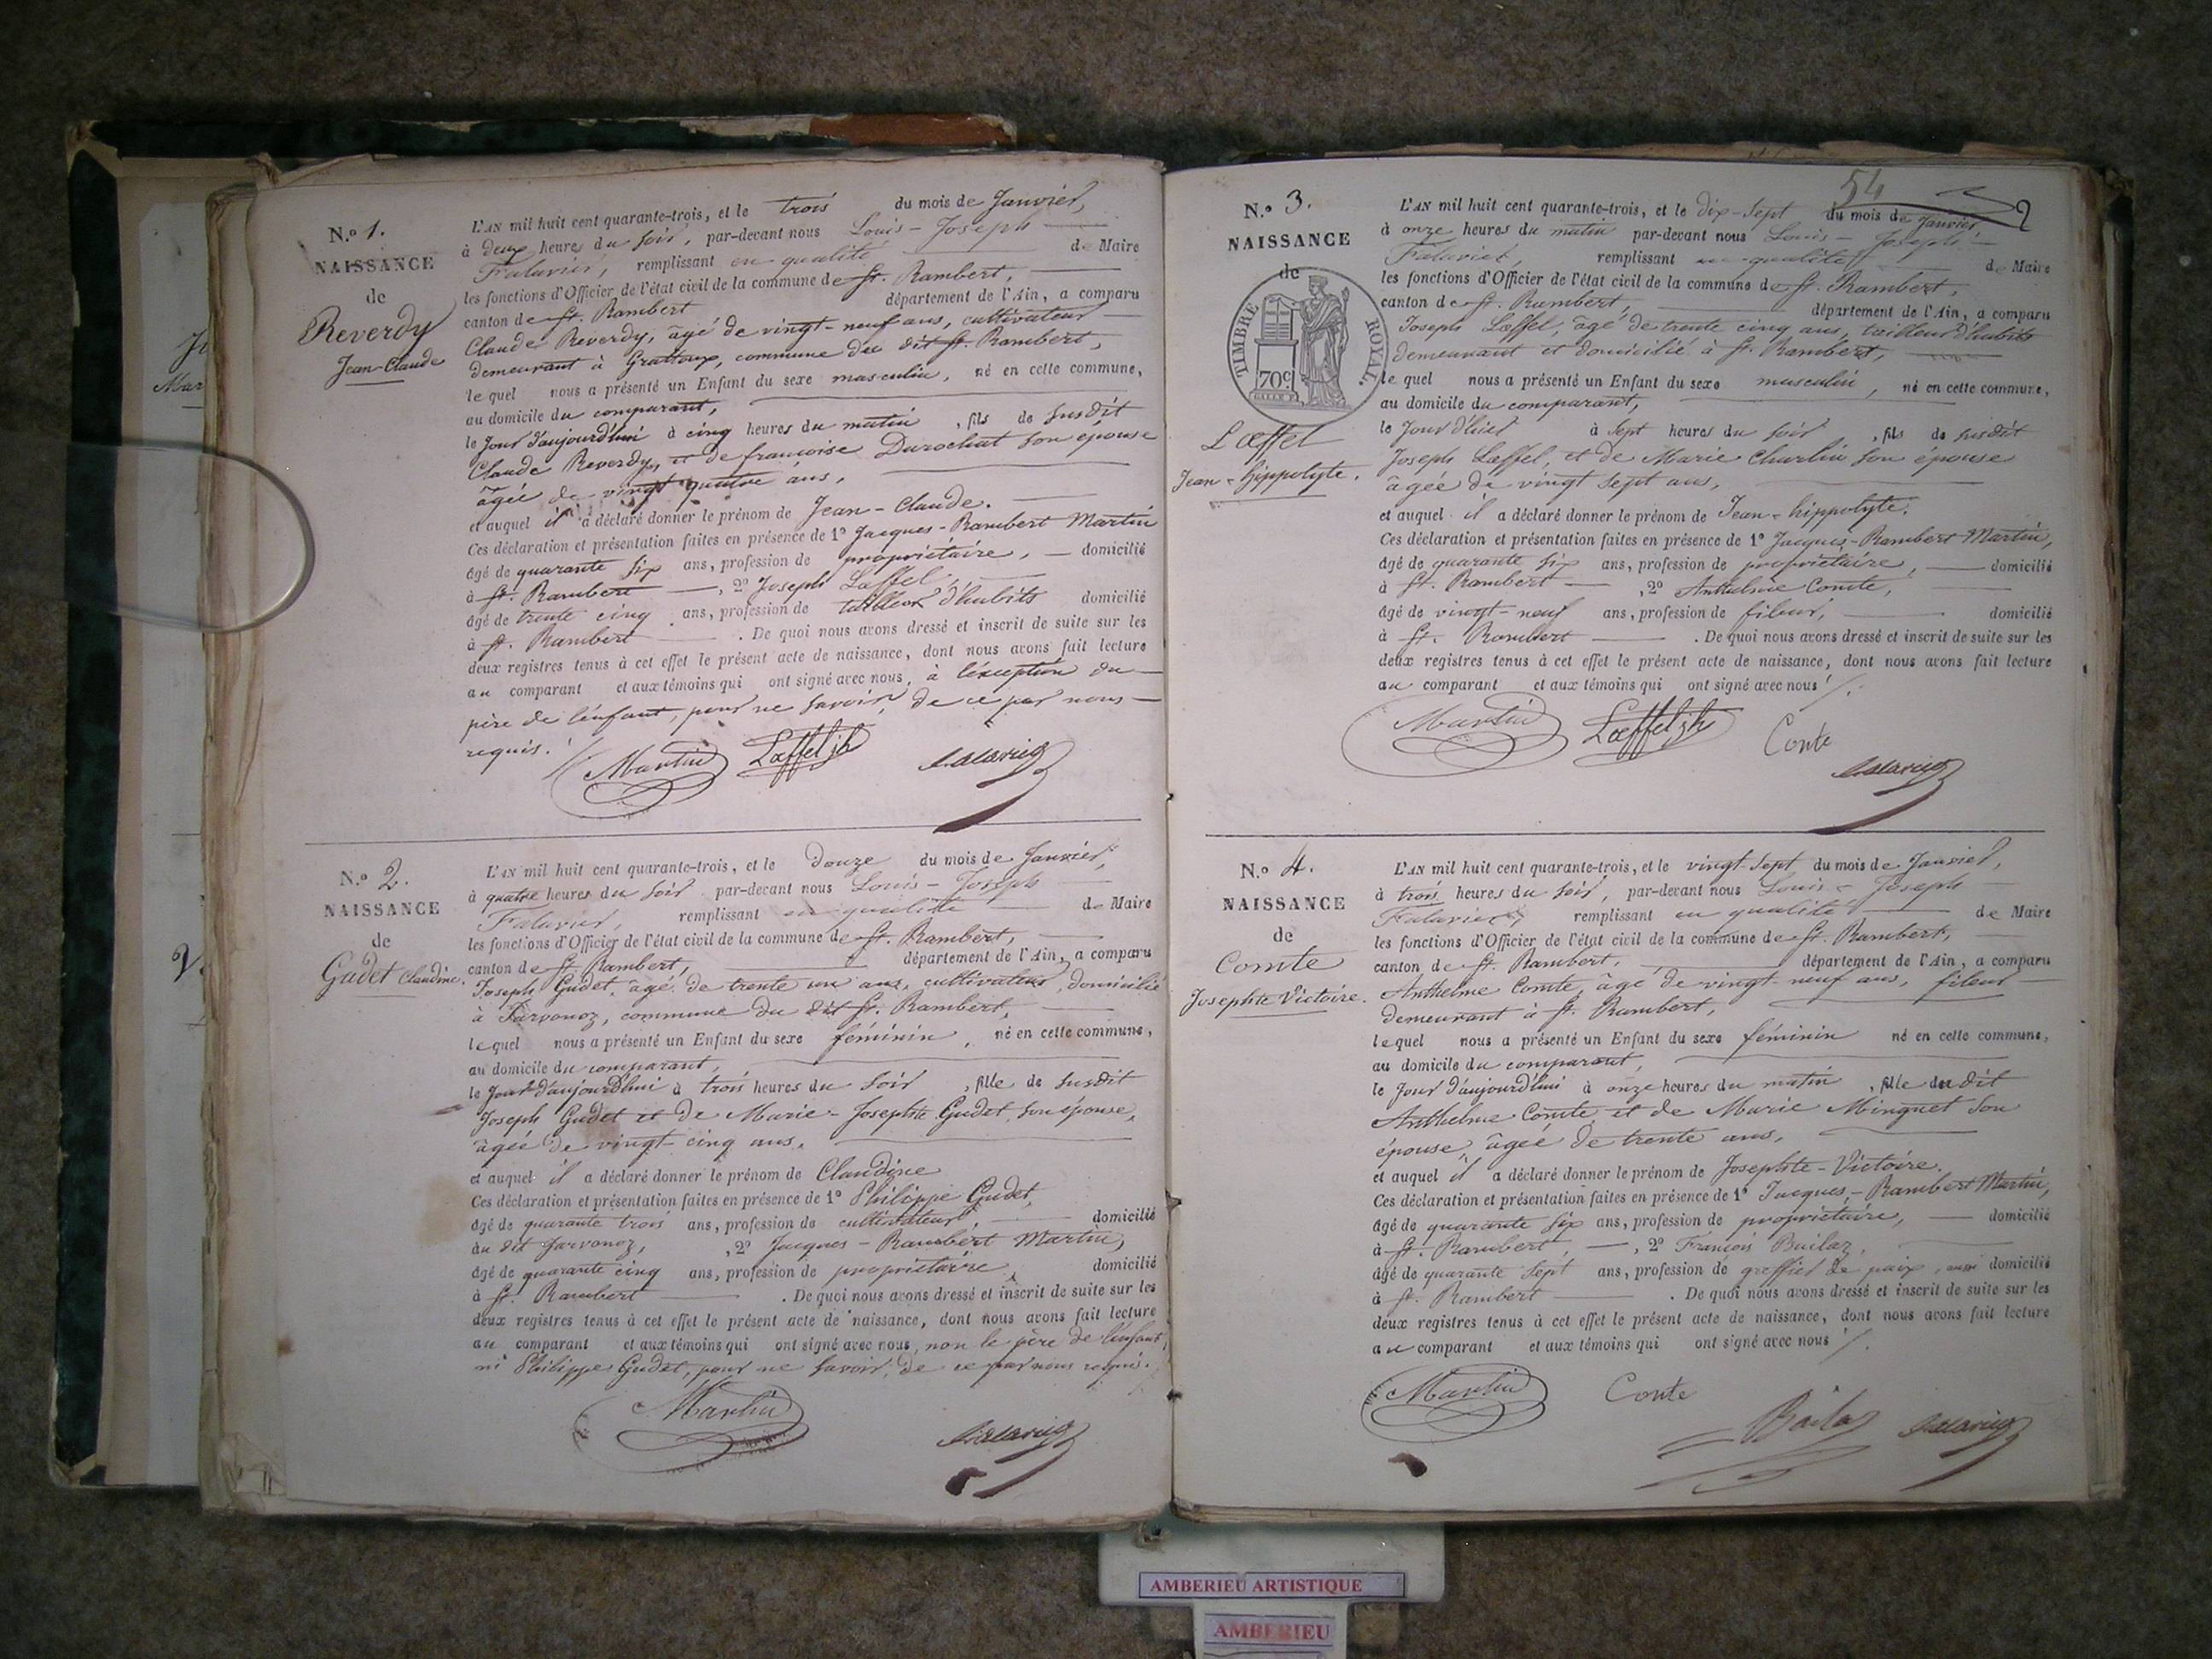 N.º 1.
NAISSANCE
de
Reverdy
Jean-Claude
L'AN mil huit cent quarante-trois, et le trois du mois de Janvier,
à deux heures du soir, par-devant nous Louis-Joseph
Falavier, remplissant en qualité de Maire
les fonctions d'Officier de l'état civil de la commune de St. Rambert,
canton de St. Rambert département de l'Ain, a comparu
Claude Reverdy, âgé de vingt-neuf ans, cultivateur
demeurant à Grattoux, commune du dit St. Rambert,
le quel nous a présenté un Enfant du sexe masculin, né en cette commune,
au domicile du comparant,
le Jour d'aujourd'hui à cinq heures du matin, fils de susdit
Claude Reverdy, et de françoise Durochat son épouse
âgée de vingt quatre ans,
et auquel il a déclaré donner le prénom de Jean-Claude.
Ces déclaration et présentation faites en présence de 1º Jacques-Rambert Martin
âgé de quarante six ans, profession de propriétaire, domicilié
à St. Rambert, 2º Joseph Lœffel
âgé de trente cinq ans, profession de tailleur d'habits domicilié
à St. Rambert. De quoi nous avons dressé et inscrit de suite sur les
deux registres tenus à cet effet le présent acte de naissance, dont nous avons fait lecture
au comparant et aux témoins qui ont signé avec nous, à l'éxception du
père de l'enfant, pour ne savoir, de ce par nous
requis.
Martin Lœffel jh Falavier
N.º 2.
NAISSANCE
de
Gudet Claudine.
L'AN mil huit cent quarante-trois, et le douze du mois de Janvier,
à quatre heures du soir par-devant nous Louis-Joseph
Falavier, remplissant en qualité de Maire
les fonctions d'Officier de l'état civil de la commune de St. Rambert,
canton de St. Rambert, département de l'Ain, a comparu
Joseph Gudet, âgé de trente un ans, cultivateur, domicilié
à Javornoz, commune du dit St. Rambert,
lequel nous a présenté un Enfant du sexe féminin, né en cette commune,
au domicile du comparant,
le Jour d'aujourd'hui à trois heures du soir, fille de susdit
Joseph Gudet et de Marie-Josephte Gudet, son épouse,
âgée de vingt-cinq ans,
et auquel il a déclaré donner le prénom de Claudine
Ces déclaration et présentation faites en présence de 1º Philippe Gudet,
âgé de quarante trois ans, profession de cultivateur, domicilié
au dit Javornoz, 2º Jacques-Rambert Martin,
âgé de quarante cinq ans, profession de propriétaire domicilié
à St. Rambert. De quoi nous avons dressé et inscrit de suite sur les
deux registres tenus à cet effet le présent acte de naissance, dont nous avons fait lecture
au comparant et aux témoins qui ont signé avec nous, non le père de l'enfant,
ni Philippe Gudet, pour ne savoir, de ce par nous requis.
Martin Falavier
54
2
N.º 3.
NAISSANCE
de
TIMBRE ROYAL.
70c
Lœffel
Jean-hippolyte.
L'AN mil huit cent quarante-trois, et le dix-sept du mois de Janvier
à onze heures du matin par-devant nous Louis-Joseph
Falavier, remplissant en qualité de Maire
les fonctions d'Officier de l'état civil de la commune de St. Rambert,
canton de St. Rambert, département de l'Ain, a comparu
Joseph Lœffel, âgé de trente cinq ans, tailleur d'habits
demeurant et domicilié à St. Rambert,
le quel nous a présenté un Enfant du sexe masculin, né en cette commune,
au domicile du comparant,
le Jour d'hier à sept heures du soir, fils de susdit
Joseph Lœffel, et de Marie Charlin son épouse
âgée de vingt sept ans,
et auquel il a déclaré donner le prénom de Jean-hippolyte.
Ces déclaration et présentation faites en présence de 1º Jacques-Rambert Martin,
âgé de quarante six ans, profession de propriétaire, domicilié
à St. Rambert, 2º Anthelme Comte,
âgé de vingt-neuf ans, profession de fileur, domicilié
à St. Rambert. De quoi nous avons dressé et inscrit de suite sur les
deux registres tenus à cet effet le présent acte de naissance, dont nous avons fait lecture
au comparant et aux témoins qui ont signé avec nous
Martin Lœffel jh Conte
Falavier
N.º 4.
NAISSANCE
de
Comte
Josephte Victoire.
L'AN mil huit cent quarante-trois, et le vingt-sept du mois de Janvier,
à trois heures du soir, par-devant nous Louis-Joseph
Falavier, remplissant en qualité de Maire
les fonctions d'Officier de l'état civil de la commune de St. Rambert,
canton de St. Rambert, département de l'Ain, a comparu
Anthelme Comte, âgé de vingt-neuf ans, fileur
demeurant à St. Rambert,
lequel nous a présenté un Enfant du sexe féminin né en cette commune,
au domicile du comparant,
le Jour d'aujourd'hui à onze heures du matin, fille du dit
Anthelme Comte, et de Marie Minguet son
épouse, âgée de trente ans,
et auquel il a déclaré donner le prénom de Josephte-Victoire.
Ces déclaration et présentation faites en présence de 1º Jacques-Rambert Martin,
âgé de quarante six ans, profession de propriétaire, domicilié
à St. Rambert, 2º François Builaz,
âgé de quarante sept ans, profession de greffier de paix, domicilié
à St. Rambert. De quoi nous avons dressé et inscrit de suite sur les
deux registres tenus à cet effet le présent acte de naissance, dont nous avons fait lecture
au comparant et aux témoins qui ont signé avec nous
Martin Conte
Falavier
AMBERIEU ARTISTIQUE
AMBERIEU